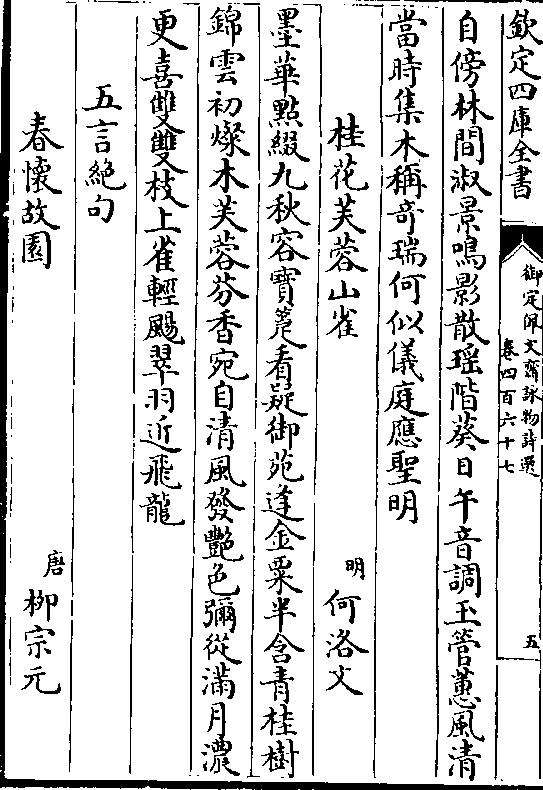 欽定四庫全書
御定佩文齋詠物詩選
卷四百六十七
五
自傍林間淑景鳴影散瑶階葵日午音調玉管蕙風清
當時集木稱奇瑞何似儀庭應聖明
桂花芙蓉山雀
明 何洛文
墨華點綴九秋容寶箑看疑御苑逢金粟半含青桂樹
錦雲初燦木芙蓉芬香宛自清風發艷色彌從滿月濃
更喜雙雙枝上雀輕颺翠羽近飛龍
五言絶句
春懷故園
唐 柳宗元